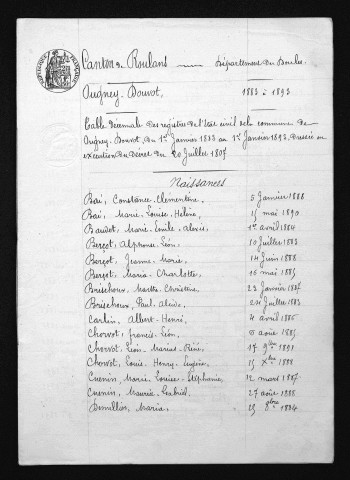 Canton de Roulans — Département du Doubs.
Ougney-Douvot, 1883 à 1893
Table Décennale des registres de l'Etat civil de la commune de
Ougney-Douvot, du 1er Janvier 1883 au 1er Janvier 1893, dressée en
exécution du Décret du 20 Juillet 1807
Naissances
Bai, Constance Clémentine. 5 Janvier 1888
Bai, Marie-Louise-Hélène, 15 mai 1890
Baudot, Marie-Emile-Alexis, 1er avril 1884
Berçot, Alphonse-Léon, 10 Juillet 1883
Berçot, Jeanne-Marie, 14 Juin 1888
Berçot, Maria-Charlotte, 16 mai 1885
Brischoux, Marthe-Christine, 23 Janvier 1887
Brischoux, Paul-Alcide, Juillet 1883
Carlin, Albert-Henri, 4 avril 1886
Chorvot, francis-Léon, 8 août 1885
Chorvot, Léon-Marius-Réné, 17 9bre 1891
Chorvot, Louis-Henry-Eugène, 15 Xbre 1888
Cuenin, Marie-Louise-Stéphanie, 12 mars 1887
Cuenin, Maurice-Gabriel, 27 août 1888
Demillier, Maria, 25 8bre 1884